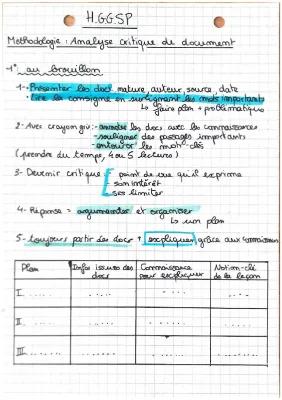 H.G.G.S.P
Méthodologie : Analyse critique de document
1° au brouillon
1- - Présenter les doc: nature, auteur, source, date
- Lire la consigne en surlignant les mots importants
↳ faire plan + problématique
2- Avec crayon gris: - annoter les docs avec les connaissances
- souligner des passages importants
- entourer les mots-clés
(prendre du temps, 4 ou 5 lectures)
3- Devenir critique point de vue qu'il exprime
son intérêt
ses limites
4- Réponse = argumenter et organiser
↳ un plan
5- toujours partir des docs + expliquer grâce aux connaissances
Plan Infos issues des docs Connaissances pour expliquer Notion-clé de la leçon
I..... ..... ..... .....
II..... ..... ..... .....
III..... ..... ..... .....